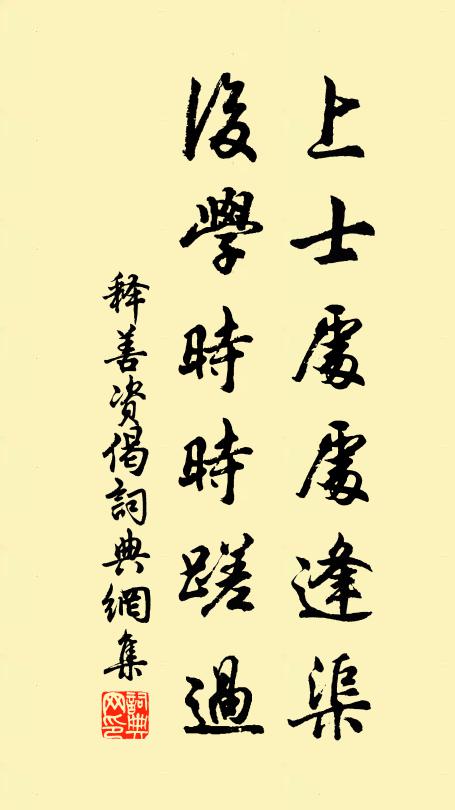 上士處處逢渠
後學時時蹉過
释善资偈詞典網集
詞典网印